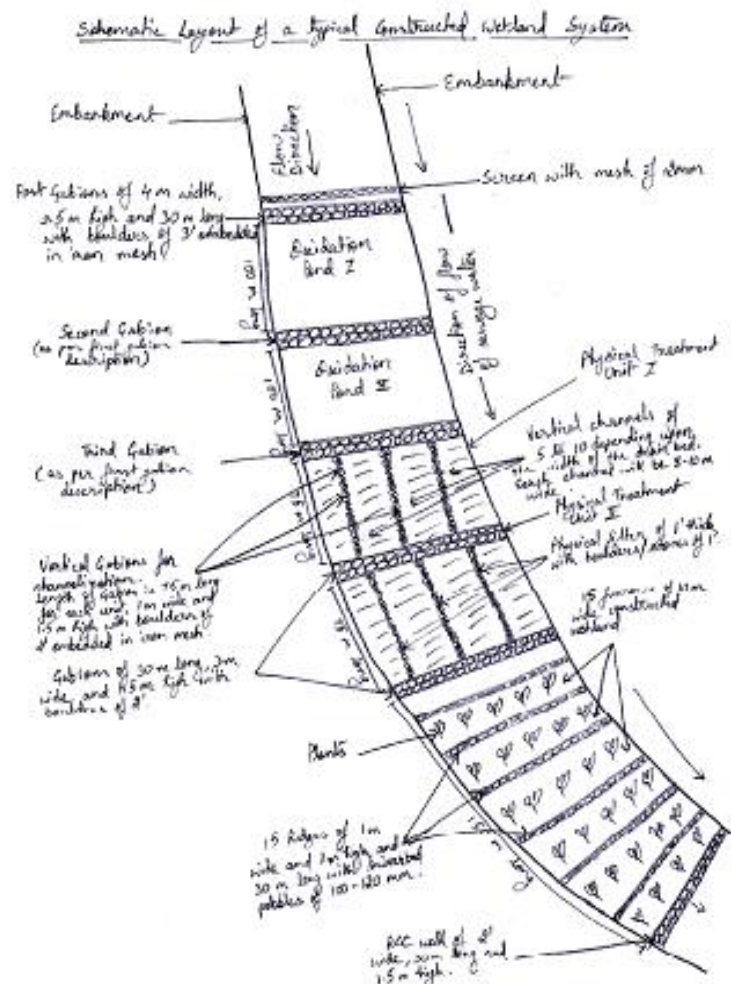 Schematic Layout of a typical Constructed Wetland System
Embankment
Embankment
Flow
Direction
Screen with mesh of
First Gabions of 4 m width,
2.5 m high and 30 m long
with boulders of 3' embedded
in iron mesh
Oxidation
Pond I
100 m long
Direction of flow
of sewage water
Second Gabion
(as per first gabion
description)
Oxidation
Pond II
100 m long
Physical Treatment
Unit I
Third Gabion
(as per first gabion
description)
Vertical channels of
5 to 10 depending upon
the width of the drain bed.
Each channel will be 8-10 m
wide
Physical Treatment
Unit II
Physical filter of 1' thick
with boulders/stones of 1'.
Vertical Gabions for
channelization.
Length of Gabion is 75 m long
for each unit, 1m wide and
1.5 m high with boulders of
2' embedded in iron mesh.
long
m long
15 of
wide constructed
wetland
Gabions of 30 m long,
wide, and 1.5 m high with
boulders of 2'
Plants
15 Ridges of 1m
wide and 1m high, and
30 m long with
pebbles of 100-120 mm.
m long
RCC wall of 2'
wide, long and
1.5 m high.